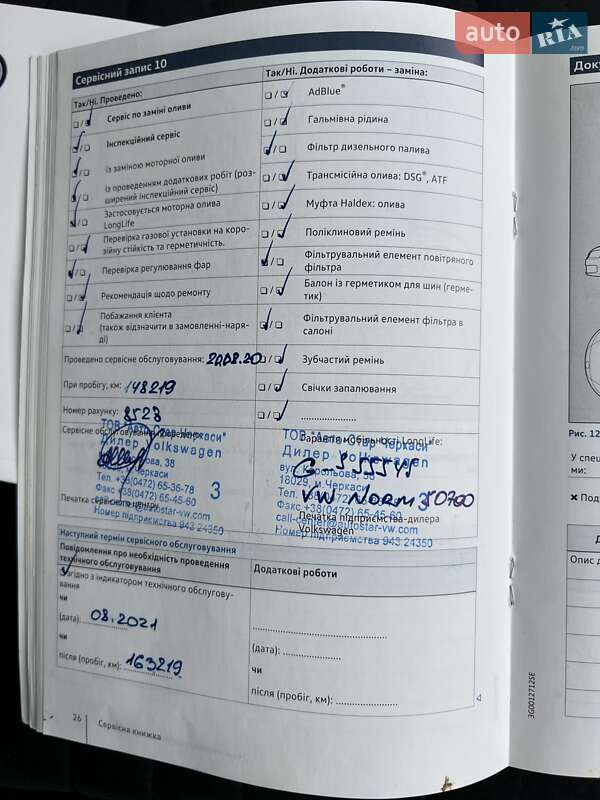 auto RIA.com
Сервісний запис 10
Так/Ні. Проведено:
Сервіс по заміні оливи
Інспекційний сервіс
із заміною моторної оливи
із проведенням додаткових робіт (роз-
ширений інспекційний сервіс)
Застосовується моторна олива
LongLife
Перевірка газової установки на коро-
зійну стійкість та герметичність.
Перевірка регулювання фар
Рекомендація щодо ремонту
Побажання клієнта
(також відзначити в замовленні-наря-
ді)
Проведено сервісне обслуговування: 20.08.20
При пробігу, км: 148219
Номер рахунку: 8523
Сервісне обслуговування
ТОВ "Авто Стар Черкаси"
Дилер Volkswagen
38
Черкаси
Тел. +38(0472) 65-36-78
Факс +38(0472) 65-45-60
3
Номер підприємства 943 24350
Печатка сервісного центру
Так/Ні. Додаткові роботи – заміна:
AdBlue®
Гальмівна рідина
Фільтр дизельного палива
Трансмісійна олива: DSG®, ATF
Муфта Haldex: олива
Поліклиновий ремінь
Фільтрувальний елемент повітряного
фільтра
Балон із герметиком для шин (герме-
тик)
Фільтрувальний елемент фільтра в
салоні
Зубчастий ремінь
Свічки запалювання
Гарантія мобільності LongLife:
ТОВ "Авто Стар Черкаси"
Дилер Volkswagen
38
18029, м.Черкаси
VW NORM 50700
Факс +38(0472) 65-45-60
call-center@autostar-vw.com
Номер підприємства 943 24350
Печатка підприємства-дилера
Volkswagen
Наступний термін сервісного обслуговування
Повідомлення про необхідність проведення
технічного обслуговування
Згідно з індикатором технічного обслугову-
вання
чи
(дата): 08.2021
чи
після (пробіг, км): 163219
Додаткові роботи
(дата):
чи
після (пробіг, км):
26 Сервісна книжка
3G0012712SE
Док
Рис. 12
У спец
ми:
Под
Д
Опис д